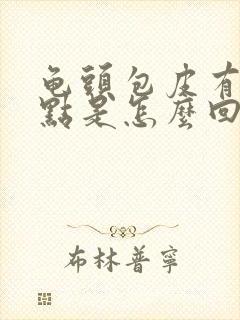 龟頭包皮有
點是怎麼回
布林普寧